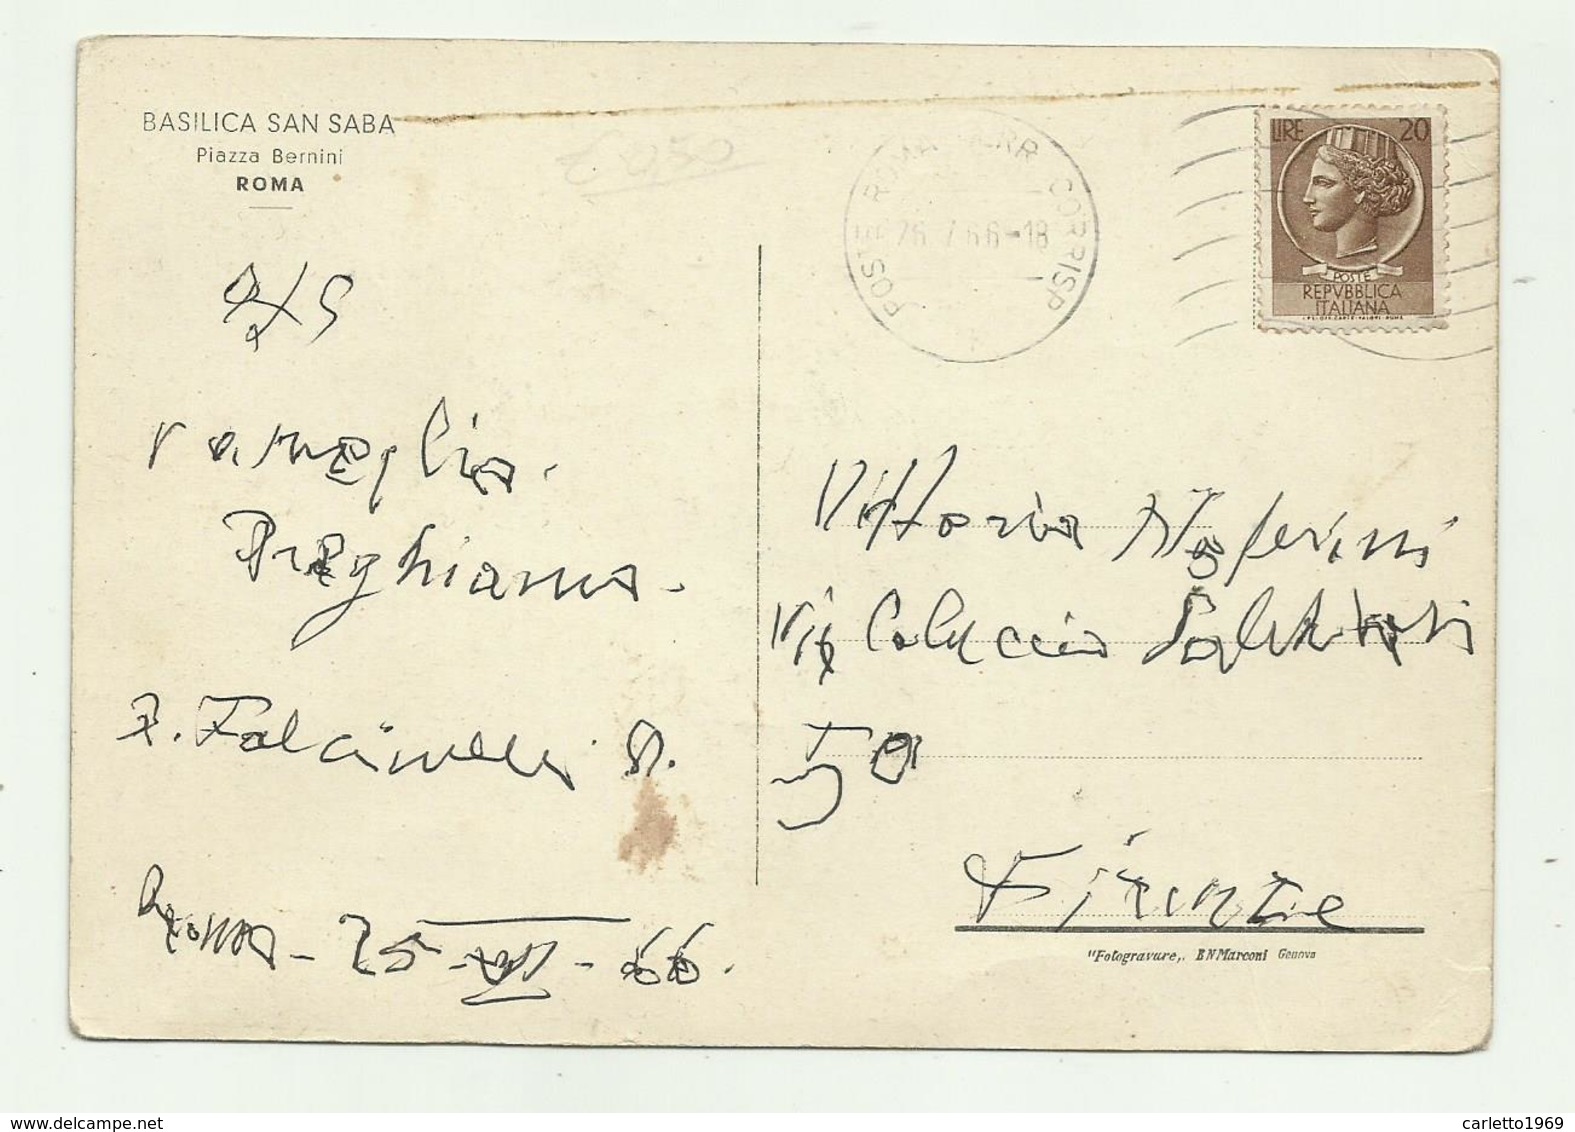 BASILICA SAN SABA
Piazza Bernini
ROMA
POSTE ROMA FERR CORRISP
26 7 66-18
LIRE 20
POSTE
REPVBBLICA
ITALIANA
Preghiamo.
Vittoria
Via Coluccio Salutati
50
Firenze
Falcinelli
Roma - 25 - VII - 66.
"Fotogravure,, BNMarconi Genova
www.delcampe.net
carletto1969